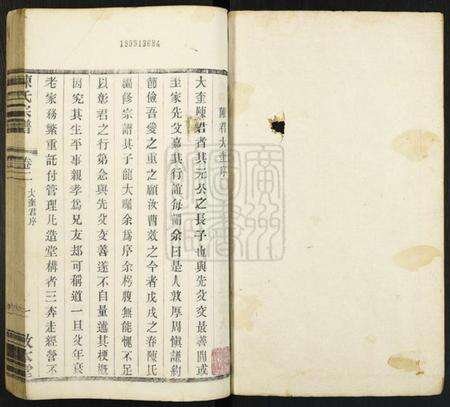 189913684
陳君大奎序
大奎陳君者其元公之長子也與先父交最善間或
至家先父嘉其行誼每謂余曰是人敦厚周慎謙約
節儉吾愛之重之願汝曹效之今者戊戌之春陳氏
議修宗譜其子龍大囑余為序余朽腐無能愧不足
以彰君之行第念與先父交善遂不自量述其梗概
因究其生平事親孝為兄友却可稱道一旦父年衰
老家務繁重託付管理凡造堂構者三奔走經營不
陳氏宗譜
卷二
大奎君序
一
敦本堂